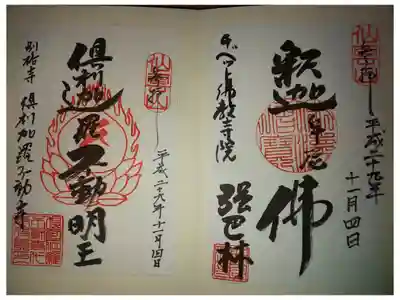 奉拝
平成二十九年
十一月四日
釈迦牟尼佛
チベット佛教寺院
強巴林
奉拝
平成二十九年十一月四日
倶利迦羅不動明王
別格寺
倶利加羅不動寺